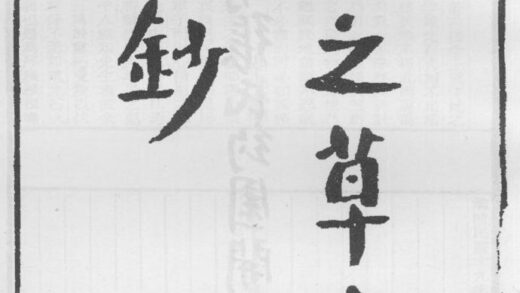 之草
鈔